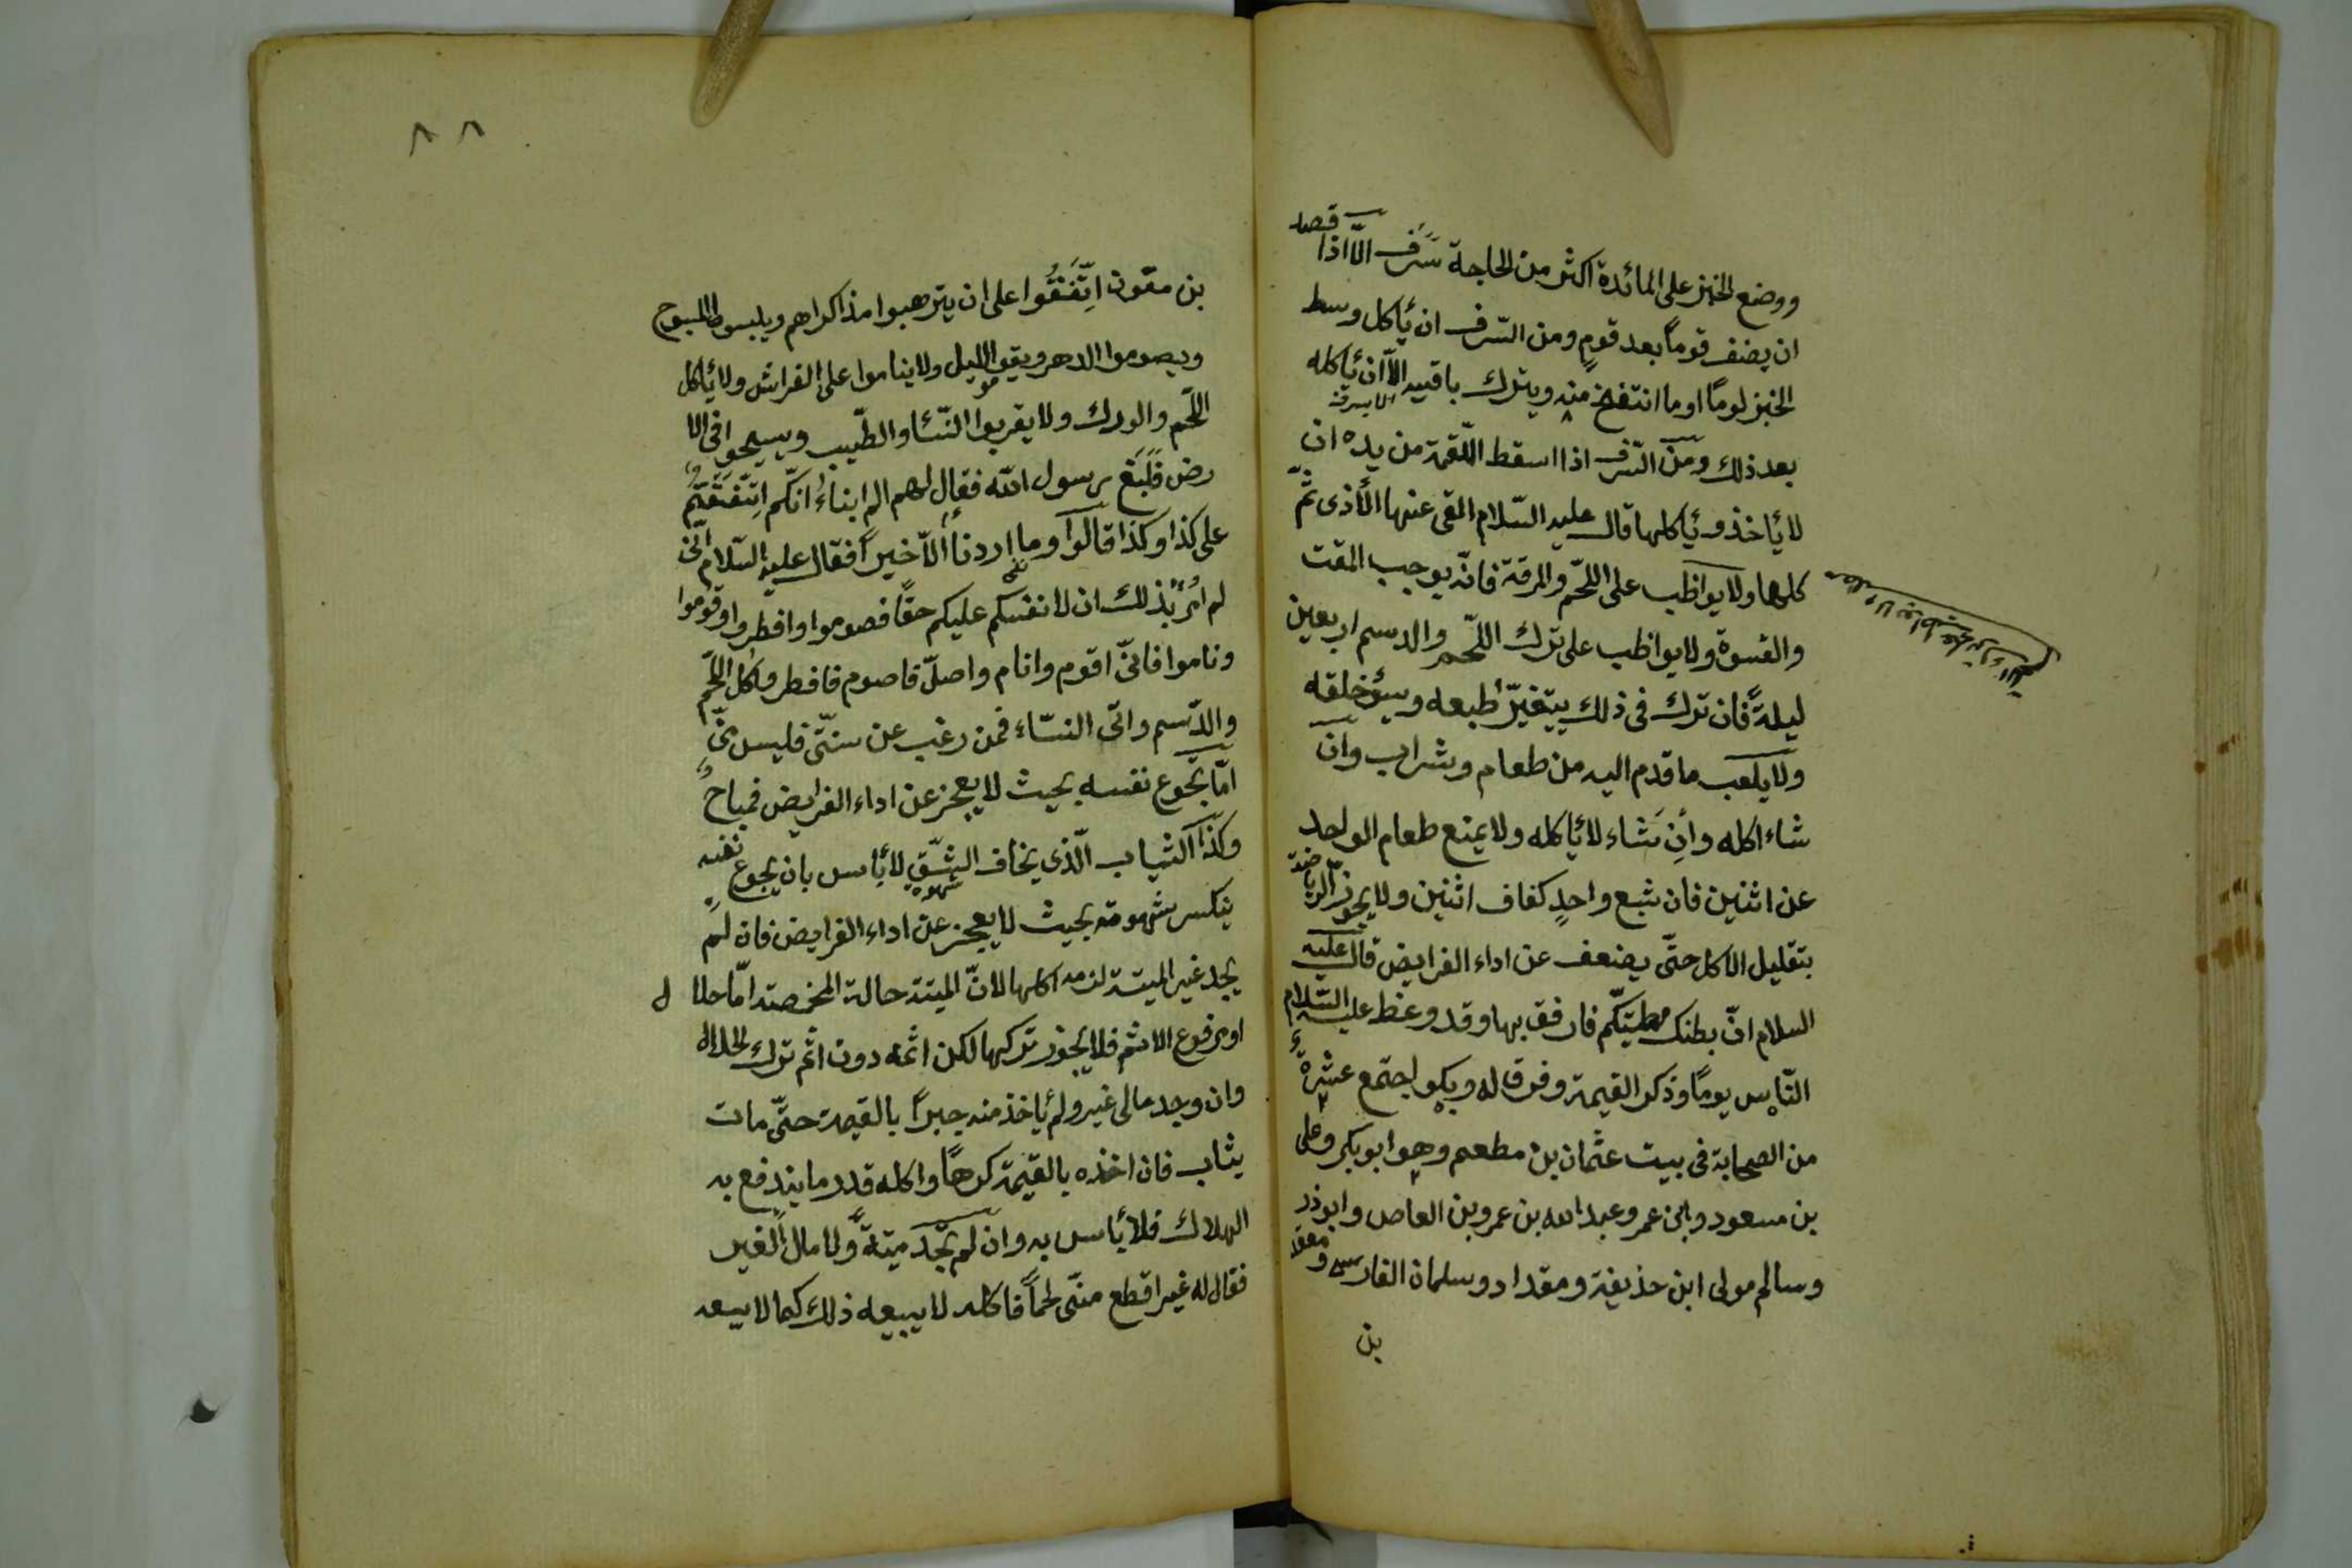 ووضع الخبز على المائدة اكثر من الحاجة سَرَف الّا اذا قصد
ان يضف قوماً بعد قومٍ ومن السّرف ان يأكل وسط
الخبز لوماً او ما انتفخ منه ويترك باقيه الّا ان يأكله
بعد ذلك ومن السّرف اذا اسقط اللّقمة من يده ان
لا يأخذ ويأكلها قال عليه السّلام القى عنها الأذى ثمّ
كلها ولا يواظب على اللّحم والمرقة فانّه يوجب المقت
والقسوة ولا يواظب على ترك اللّحم والدسم اربعين
ليلةً فان ترك فى ذلك يتغيّر طبعه وسيؤ خلقه
ولا يعب ما قدم اليه من طعام وشراب وان
شاء اكله وأن شاء لا يأكله ولا يمنع طعام الواحد
عن اثنين فان شبع واحدٍ كفاف اثنين ولا يجوز الرياضة
بتقليل الاكل حتّى يضعف عن اداء الفرايض قال عليه
السلام انّ بطنك مطيتكم فارفق بها وقد وعظ عليه السّلام
النّاس يوماً وذكر القيمة وفرق له وبكوا جتمع عشرة
من الصحابة فى بيت عثمان بن مطعم وهو ابو بكر وعلى
بن مسعود وابن عمر وعبد الله بن عمرو بن العاص وابو ذر
وسالم مولى ابن حذيفة ومقداد وسلمان الفارسى و
بن
٨٨
بن مقون اتّفَقُوا على ان يترهبوا مذاكراهم ويلبسوا المسوح
ويصوموا الدهر ويقيموا الليل ولا يناموا على الفراش ولا يأكل
اللّحم والودك ولا يقربوا النّساء والطّيب ويسيحوا فى الا
رض فَبَلَغ رسول الله فقال لهم الم ابناءُ انكّم اتّفَقتُم
على كذا وكذا قالوا وما اردنا الّا خيراً فقال عليه السّلام انّى
لم اُمر بذلك ان لانفسكم عليكم حقّاً فصوموا وافطروا وقوموا
وناموا فانّى اقوم وانام واصلّ فاصوم فافطر وأكل اللّحم
والدّسم واتى النسّاء فمن رغب عن سنتّى فليس منّى
امّا يجوع نفسه بحيث لا يعجز عن اداء الفرايض فمباحٌ
وكذا الشباب الّذى يخاف الشّبق لا بأس بان يجوع نفسه
ينكسر شهوته بحيث لا يعجز عن اداء الفرايض فان لم
يجد غير الميتة لزمه اكلها لانّ الميتة حالة المخمصة امّا حلال
او مرفوع الاثم فلا يجوز تركها لكن اثمه دون اثم ترك الحلال
وان وجد مالى غير ولم يأخذ منه جبراً بالقيمة حتّى مات
يثاب فان اخذه بالقيمة كرهاً واكله قدر ما يندفع به
الهلاك فلا بأس به وان لم يجد ميتةً ولا مال الغير
فقال له غير اقطع منّى لحماً فاكله لا يبيعه ذلك كما لا يسعه